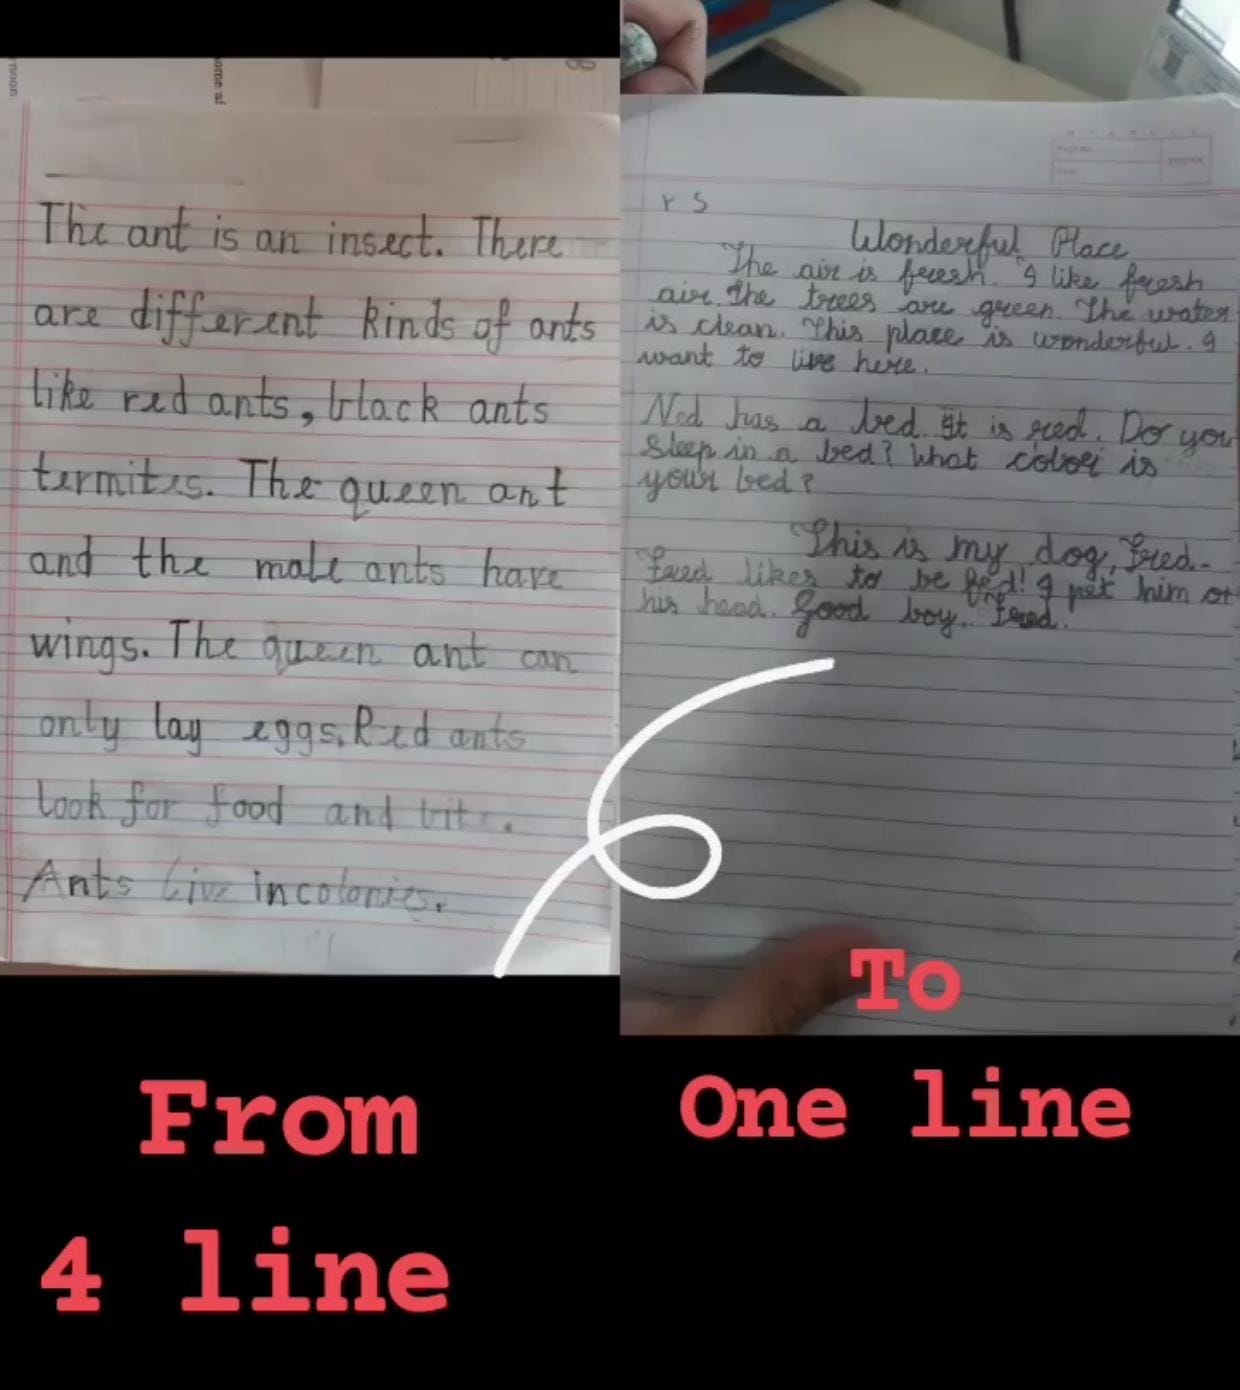 The ant is an insect. There
are different kinds of ants
like red ants, black ants
termites. The queen ant
and the male ants have
wings. The queen ant can
only lay eggs. Red ants
look for food and bite.
Ants live in colonies.
r s
Wonderful Place
The air is fresh. I like fresh
air. The trees are green. The water
is clean. This place is wonderful. I
want to live here.
Ned has a bed. It is red. Do you
sleep in a bed? What color is
your bed?
This is my dog, Fred.
Fred likes to be fed! I pet him on
his head. Good boy, Fred.
From
4 line
To
One line